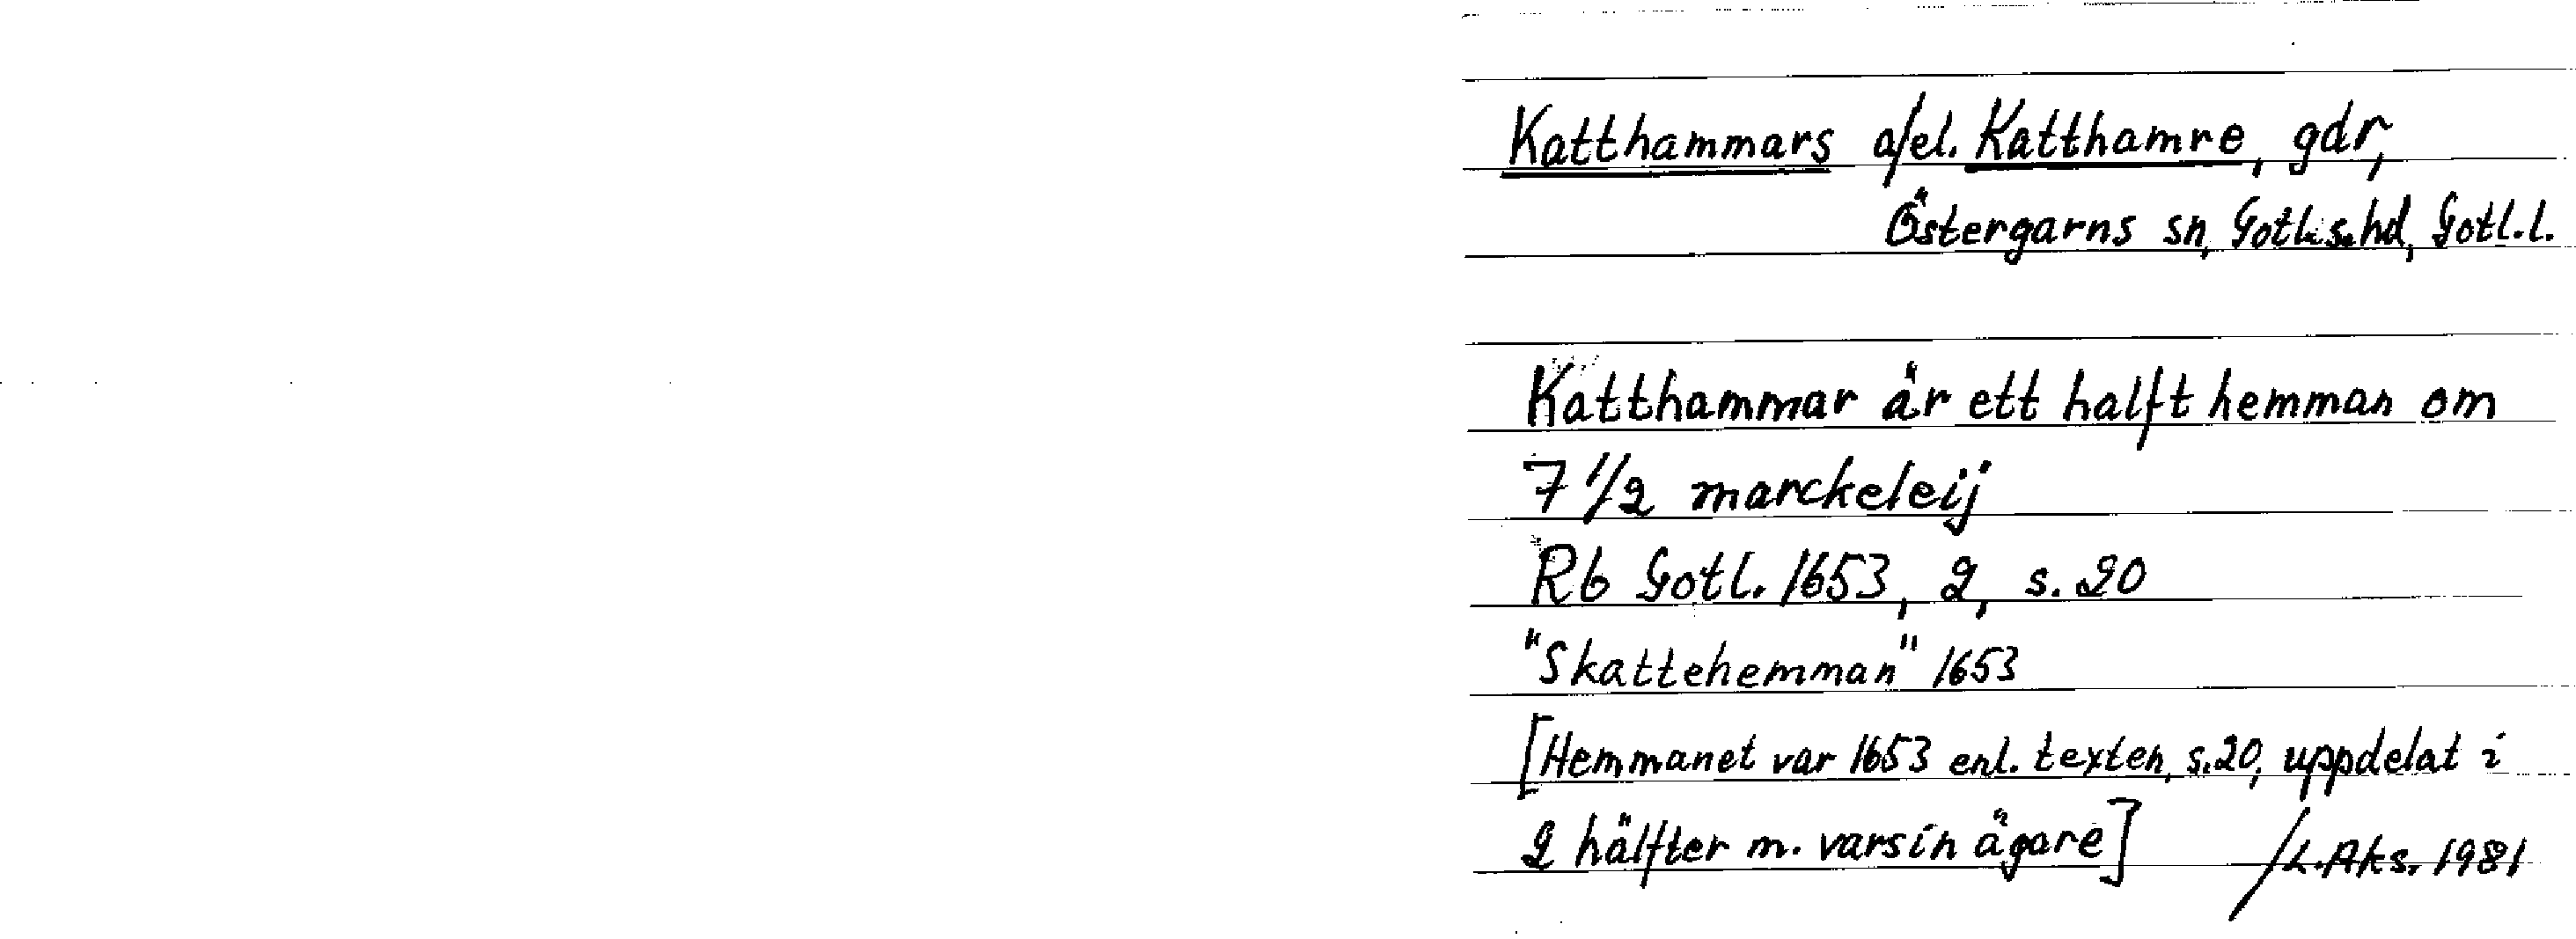 Katthammars o/el. Katthamre, gdr,
Östergarns sn, Gotl. s. hd, Gotl. l.
Katthammar är ett halft hemman om
7 1/2 marckeleij
Rb Gotl. 1653, 2, s. 20
"Skattehemman" 1653
[Hemmanet var 1653 enl. texten, s. 20, uppdelat i
2 hälfter m. varsin ägare] /L. Aks. 1981